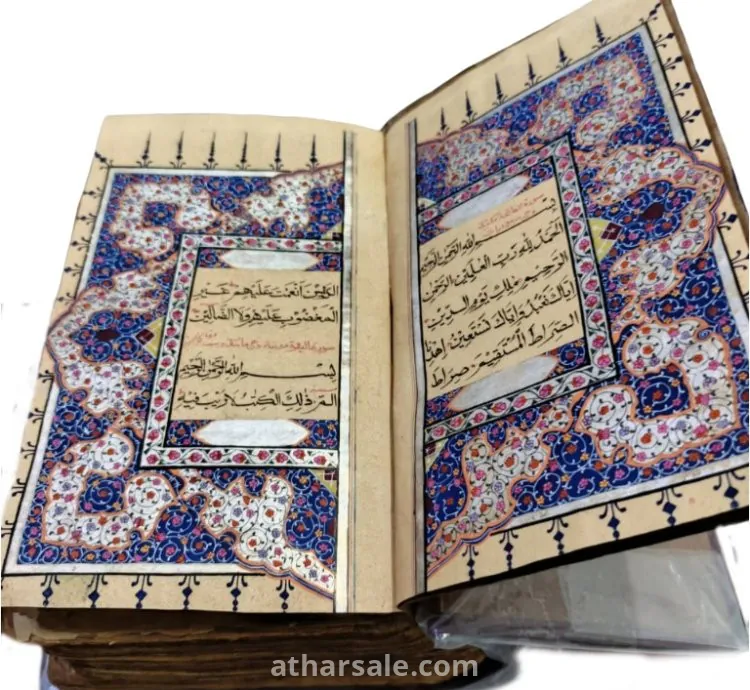 بِسْمِ اللهِ الرَّحْمٰنِ الرَّحِيْمِ
اَلْحَمْدُ لِلّٰهِ رَبِّ الْعٰلَمِيْنَ الرَّحْمٰنِ
الرَّحِيْمِ مٰلِكِ يَوْمِ الدِّيْنِ
اِيَّاكَ نَعْبُدُ وَاِيَّاكَ نَسْتَعِيْنُ اِهْدِنَا
الصِّرَاطَ الْمُسْتَقِيْمَ صِرَاطَ
الَّذِيْنَ اَنْعَمْتَ عَلَيْهِمْ غَيْرِ
الْمَغْضُوْبِ عَلَيْهِمْ وَلَا الضَّالِّيْنَ
سورة البقرة مدنية
بِسْمِ اللهِ الرَّحْمٰنِ الرَّحِيْمِ
الٓمّٓ ذٰلِكَ الْكِتٰبُ لَا رَيْبَ فِيْهِ
atharsale.com